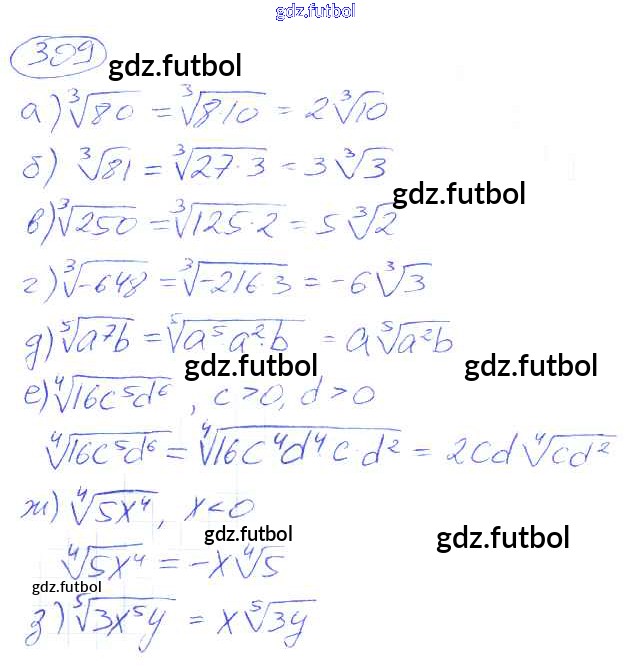 gdz.futbol
309
gdz.futbol
а) ∛80 = ∛8·10 = 2∛10
б) ∛81 = ∛27·3 = 3∛3
gdz.futbol
в) ∛250 = ∛125·2 = 5∛2
г) ∛-648 = ∛-216·3 = -6∛3
д) ⁵√a⁷b = ⁵√a⁵a²·b = a⁵√a²b
gdz.futbol gdz.futbol
е) ∜16c⁵d⁶, c>0, d>0
∜16c⁵d⁶ = ∜16c⁴d⁴c·d² = 2cd∜cd²
ж) ∜5x⁴, x<0
gdz.futbol gdz.futbol
∜5x⁴ = -x∜5
gdz.futbol
з) ⁵√3x⁵y = x⁵√3y